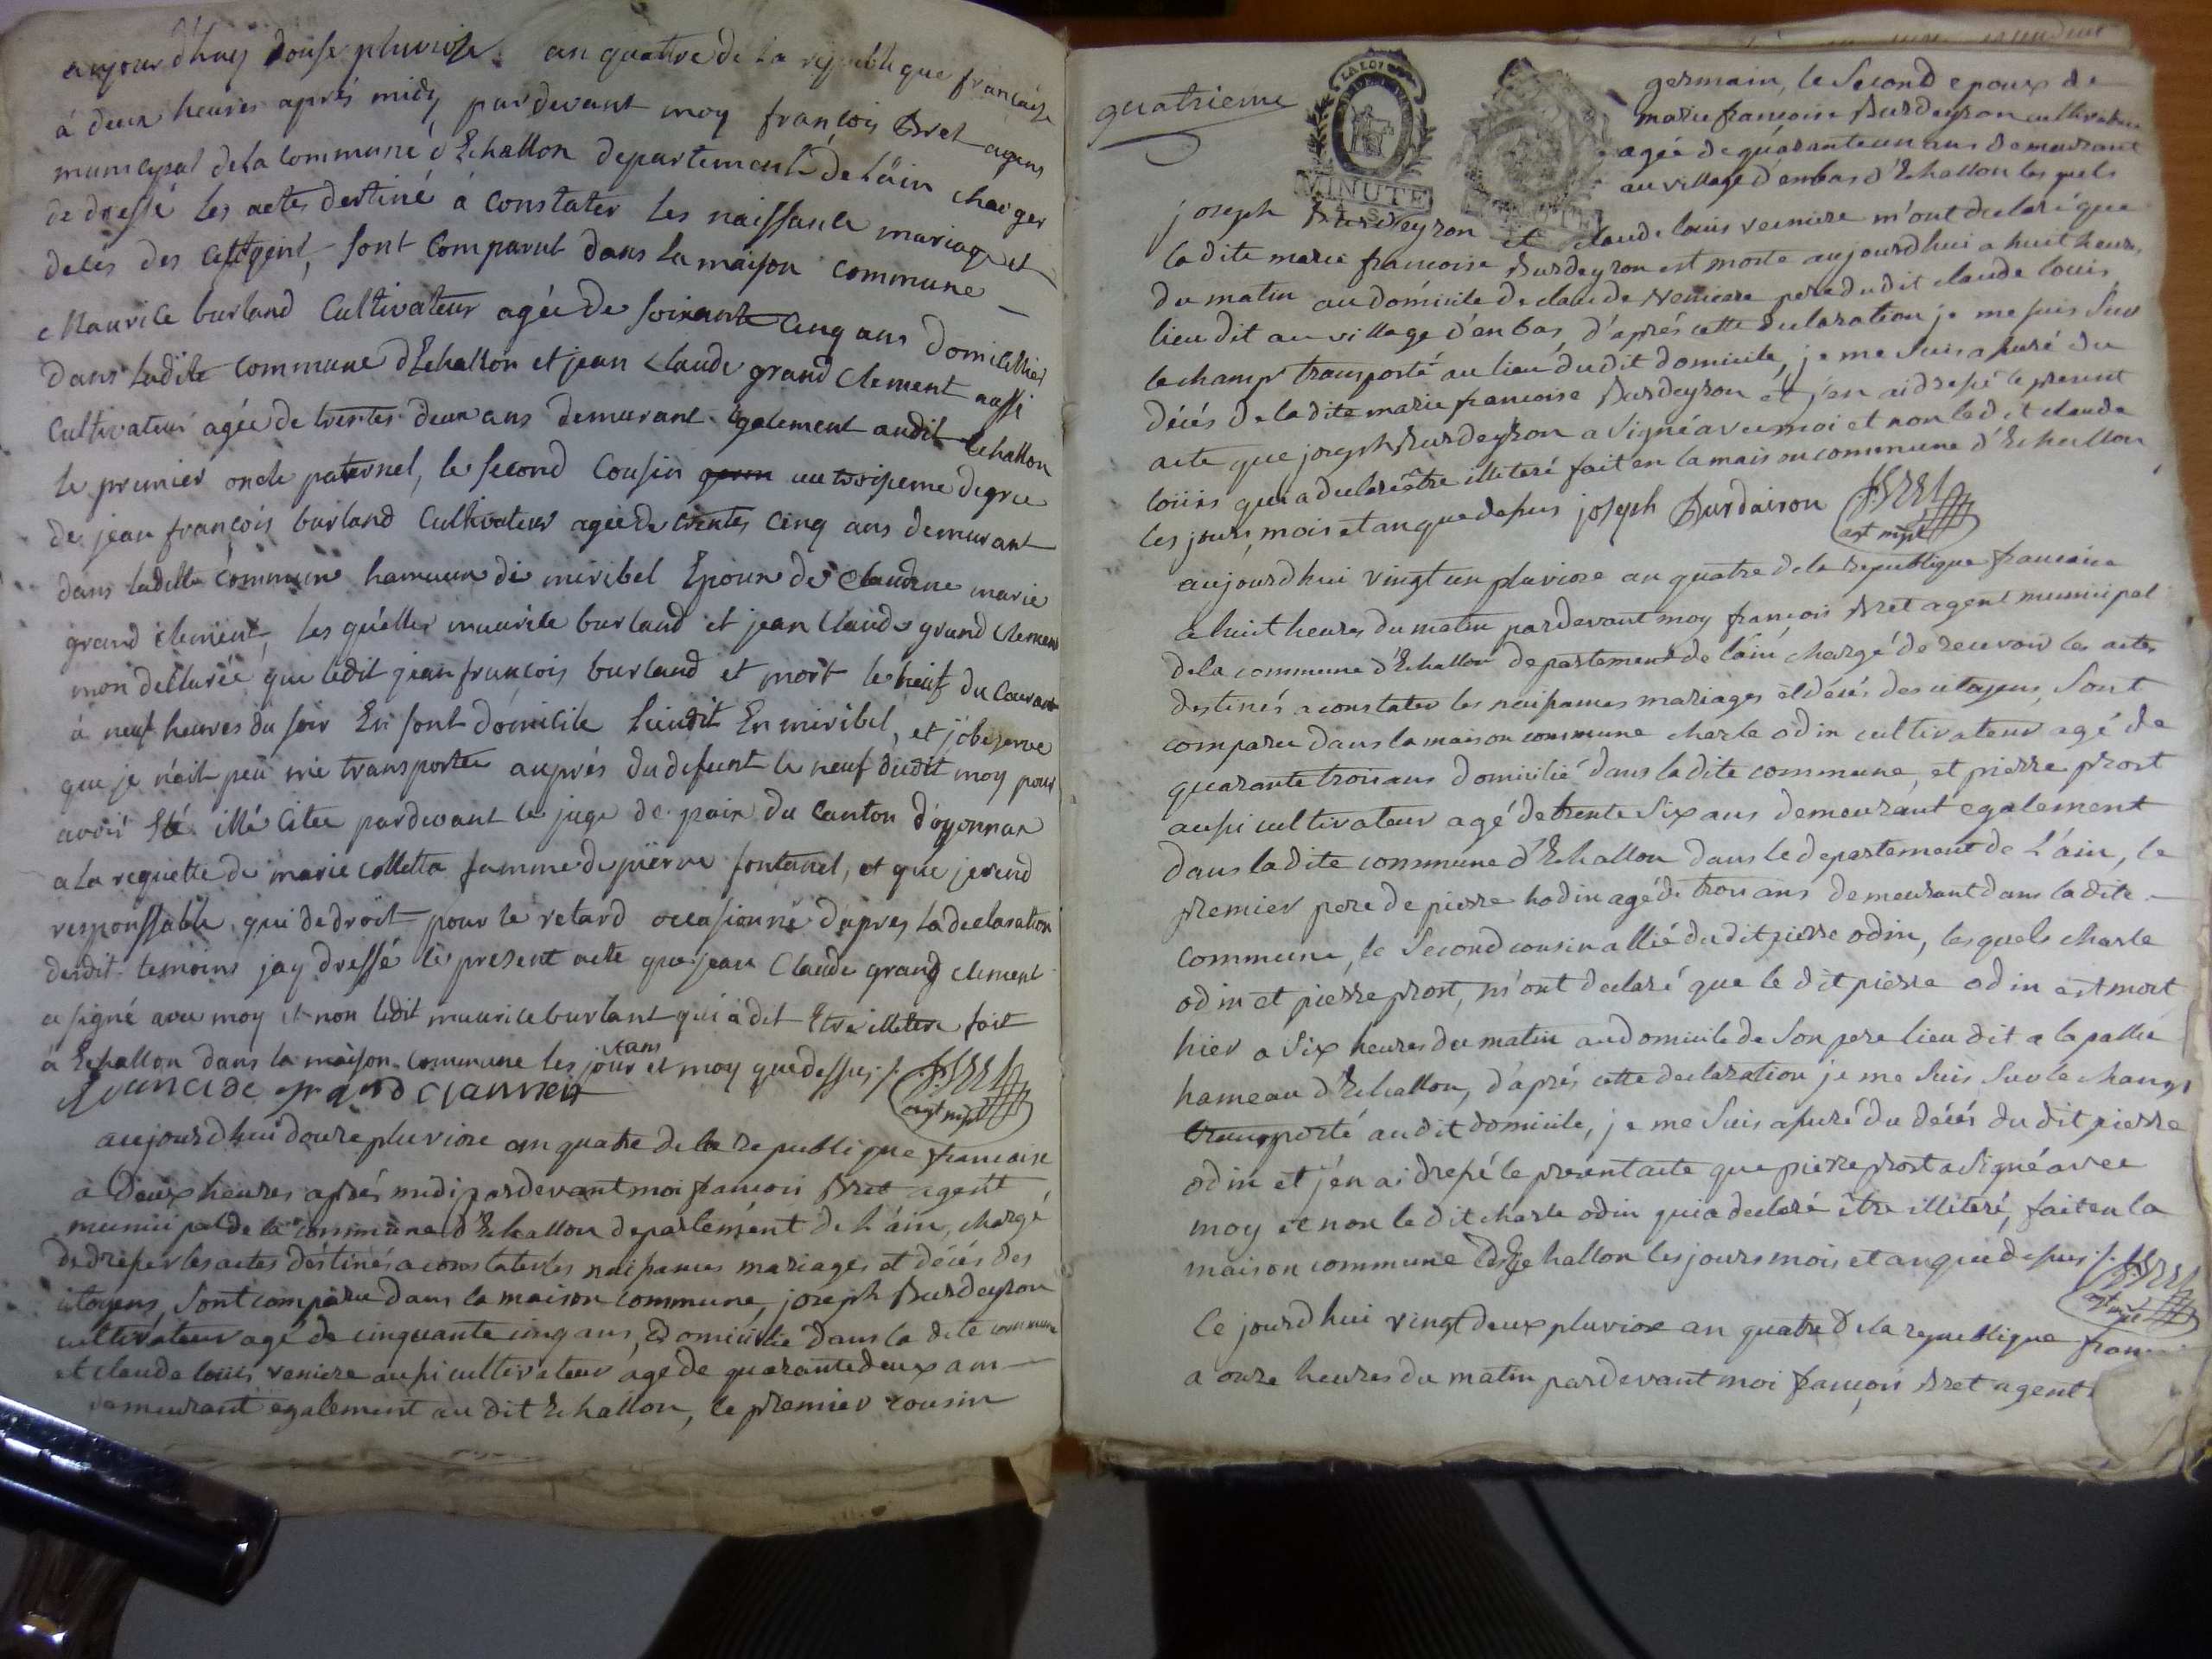 aujourd'huy douse pluviose an quattre de la republique française
à deux heures aprés midy, pardevant moy françois Bret agent
municipal de la Commune d'Echallon departement de L'ain charger
de dressé les actes destiné à Constater les naissance mariage et
decés des Citoyens, sont Comparut dans la maison Commune
Maurice burland Cultivateur agée de soixante Cinq ans domicillier
dans ladite Commune dEchallon et jean Claude grand Clement aussi
Cultivateur agée de trentes deux ans demurant Egalement audit Echallon
le premier oncle paternel, le second Cousin germ au troisieme degrée
de jean françois burland Cultivateur agée de trentes Cinq ans demurant
dans laditte Commune hameaux de miribel Epoux de Claudine marie
grand Clement, les quelles maurile burland et jean Claude grand Clement
mon dellarée que ledit jean françois burland et mort le neuf du Courant
à neuf heures du soir En sont domicile lieudit En miribel, et j'observe
que je n'ait peu me transporter auprés du defunt le neuf dudit moy pour
avoir Eté citee pardevant le juge de paix du Canton d'oyonnax
a la requette de marie Colletta famme de pierre fontanel, et que je rend
responssable qui de droit pour le retard occasionné d'apres la declaration
desdit temoins jay dressé le present acte que jean Claude grand Clement
a signé avec moy et non ledit maurile burlant qui à dit Etre illetere fait
à Echallon dans la maison Commune les jour et an et moy que dessus ./. fBret
agt mpl
aujourdhui douze pluviose an quatre de la republique francaise
a deux heures aprés midi pardevant moi francois Bret agent
municipal de la commune d'Echallon departement de l'ain, chargé
de dresser les actes destinés a constater les naissances mariages et décés des
citoyens, sont comparu dans la maison commune, joseph Burdeyron
cultivateur agé de cinquante cinq ans, domicilié dans la dite commune
et claude louis veniere aussi cultivateur agé de quarante deux ans
demeurant egalement au dit Echallon, le premier cousin
quatrieme
LA LOI
MINUTE
germain, le second epoux de
marie francoise Burdeyron cultivatrice
agée de quarante un ans demeurant
au village d'enbas d'Echallon les quels
joseph Burdeyron et claude louis verniere m'ont declaré que
la dite marie francoise Burdeyron est morte aujourdhui a huit heures
du matin au domicile de claude veniere pere du dit claude louis
lieu dit au village d'en bas, d'aprés cette declaration je me suis sur
le champ transporté au lieu du dit domicile, je me suis assuré du
décés de la dite marie francoise Burdeyron et j'en ai dressé le present
acte que joseph Burdeyron a signé avec moi et non le dit claude
louis qui a declaré être illiteré fait en la maison commune d'Echallon
les jours, mois et an que dessus joseph Burdairon fBret
agt mpl
aujourdhui vingt un pluviose an quatre de la republique francaise
a huit heures du matin pardevant moy francois Bret agent municipal
de la commune d'Echallon departement de l'ain chargé de recevoir les actes
destinés a constater les naissances mariages et décés des citoyens, sont
comparu dans la maison commune charle odin cultivateur agé de
quarante trois ans domicilié dans la dite commune, et pierre prost
aussi cultivateur agé de trente six ans demeurant egalement
dans la dite commune d'Echallon dans le departement de l'ain, le
premier pere de pierre hodin agé de trois ans demeurant dans la dite
commune, le second cousin allié du dit pierre odin, lesquels charle
odin et pierre prost, m'ont declaré que le dit pierre odin est mort
hier a six heures du matin au domicile de son pere lieu dit a la pallie
hameau d'Echallon, d'aprés cette declaration je me suis sur le champ
transporté au dit domicile, je me suis assuré du décés du dit pierre
odin et j'en ai dressé le présent acte que pierre prost a signé avec
moy et non le dit charle odin qui a declaré être illiteré, fait en la
maison commune d'Echallon les jours mois et an que dessus ./. fBret
agt mpl
Ce jourdhui vingt deux pluviose an quatre de la republique fran
a onze heures du matin pardevant moi francois Bret agent